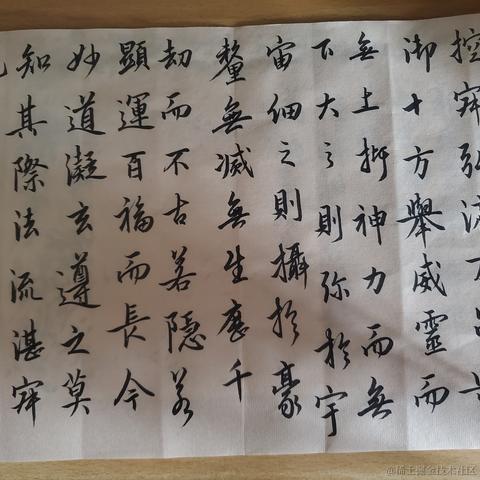 控寂弘濟万品
御十方舉威靈而
無上抑神力而無
下大之則弥於宇
宙細之則攝於豪
釐無减無生歷千
劫而不古若隱若
顯運百福而長今
妙道凝玄遵之莫
知其際法流湛寂
@稀土掘金技术社区